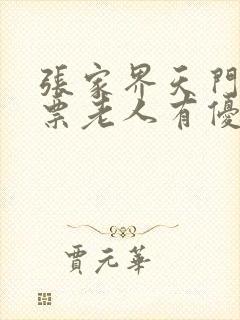 張家界天門
票老人有優
賈元華